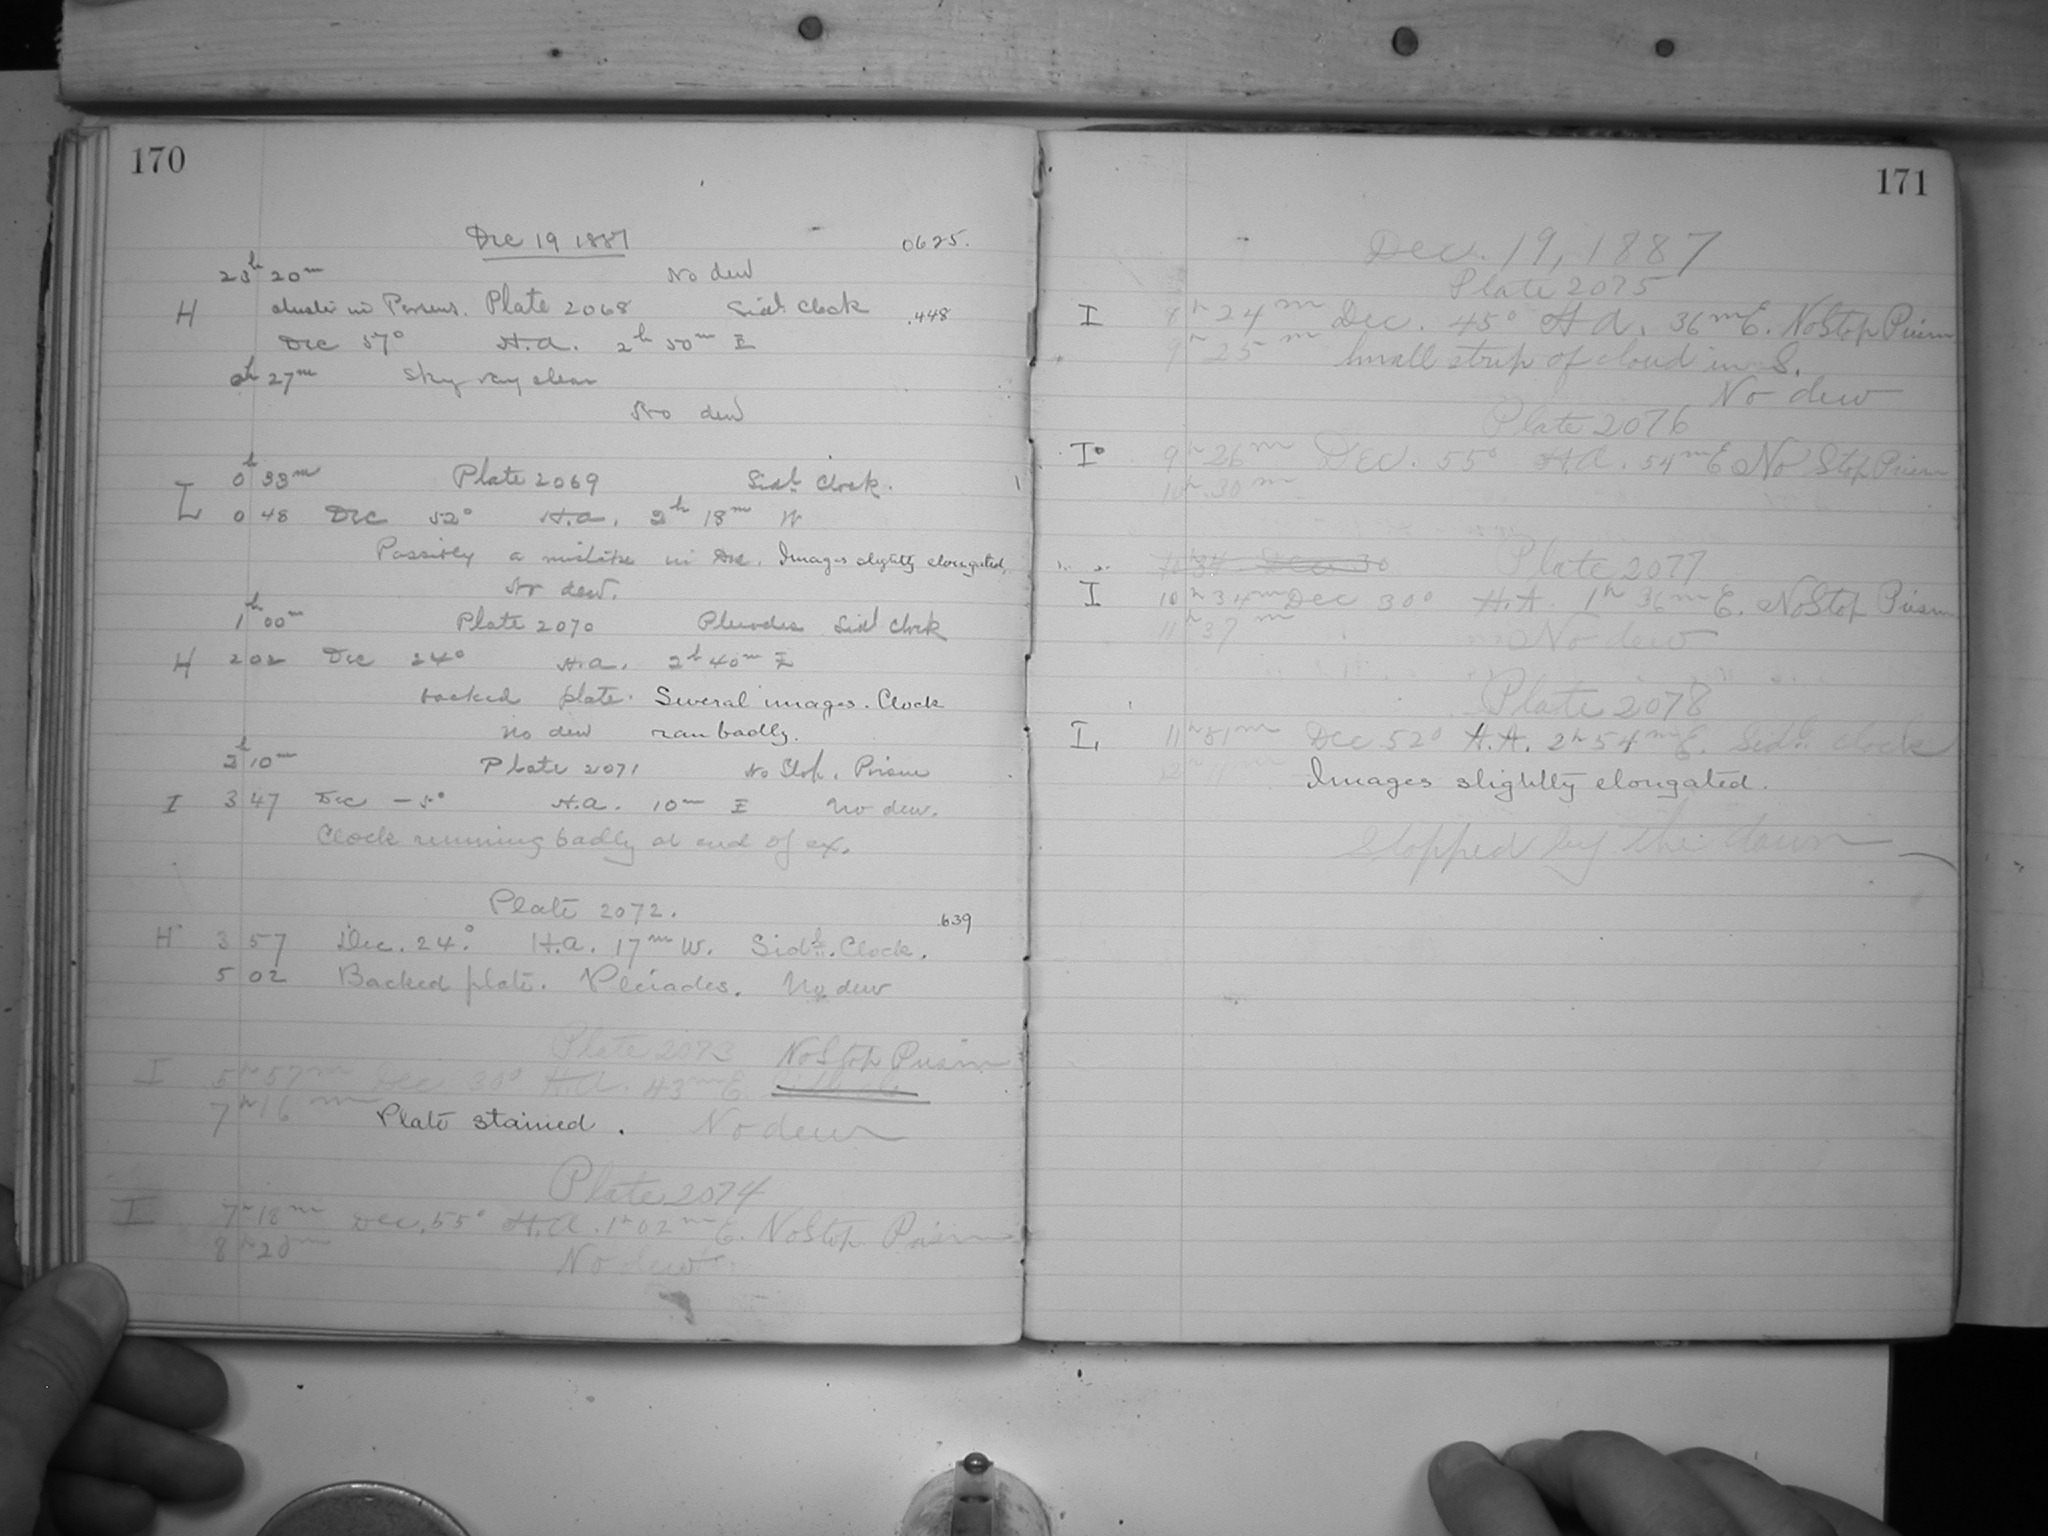 170
Dec 19 1887 0625.
23h 20m No dew
H cluster in Perseus. Plate 2068 Sidl Clock .448
Dec 57° H.A. 2h 50m E
0h 27m Sky very clear
No dew
0h 33m Plate 2069 Sidl. Clock.
I 0 48 Dec 52° H.A. 2h 18m W
Possibly a mistake in Dec. Images slightly elongated.
No dew.
1h 00m Plate 2070 Pleiades Sidl Clock
H 2 02 Dec 24° H.A. 2h 40m E
backed plate. Several images. Clock
no dew ran badly.
3h 10m Plate 2071 No Stop. Prism
I 3 47 Dec -5° H.A. 10m E No dew.
Clock running badly at end of ex.
Plate 2072. .639
H 3 57 Dec. 24°. H.A. 17m W. Sidl. Clock.
5 02 Backed plate. Pleiades. No dew
Plate 2073 No Stop Prism
I 5h 57m Dec 30° H.A. 43m E.
7h 16m Plate stained. No dew
Plate 2074
I 7h 18m Dec. 55° H.A. 1h 02m E. No Stop Prism
8h 20m No dew
171
Dec. 19, 1887
Plate 2075
I 8h 24m Dec. 45° H.A. 36m E. No Stop Prism
9h 25m Small strip of cloud in S.
No dew
Plate 2076
I 9h 26m Dec. 55° H.A. 54m E No Stop Prism
10h 30m
10h 34 Dec 30 Plate 2077
I 10h 34m Dec 30° H.A. 1h 36m E. No Stop Prism
11h 37m No dew
Plate 2078
I 11h 51m Dec 52° H.A. 2h 54m E. Sidl. Clock
Images slightly elongated.
Stopped by the dawn